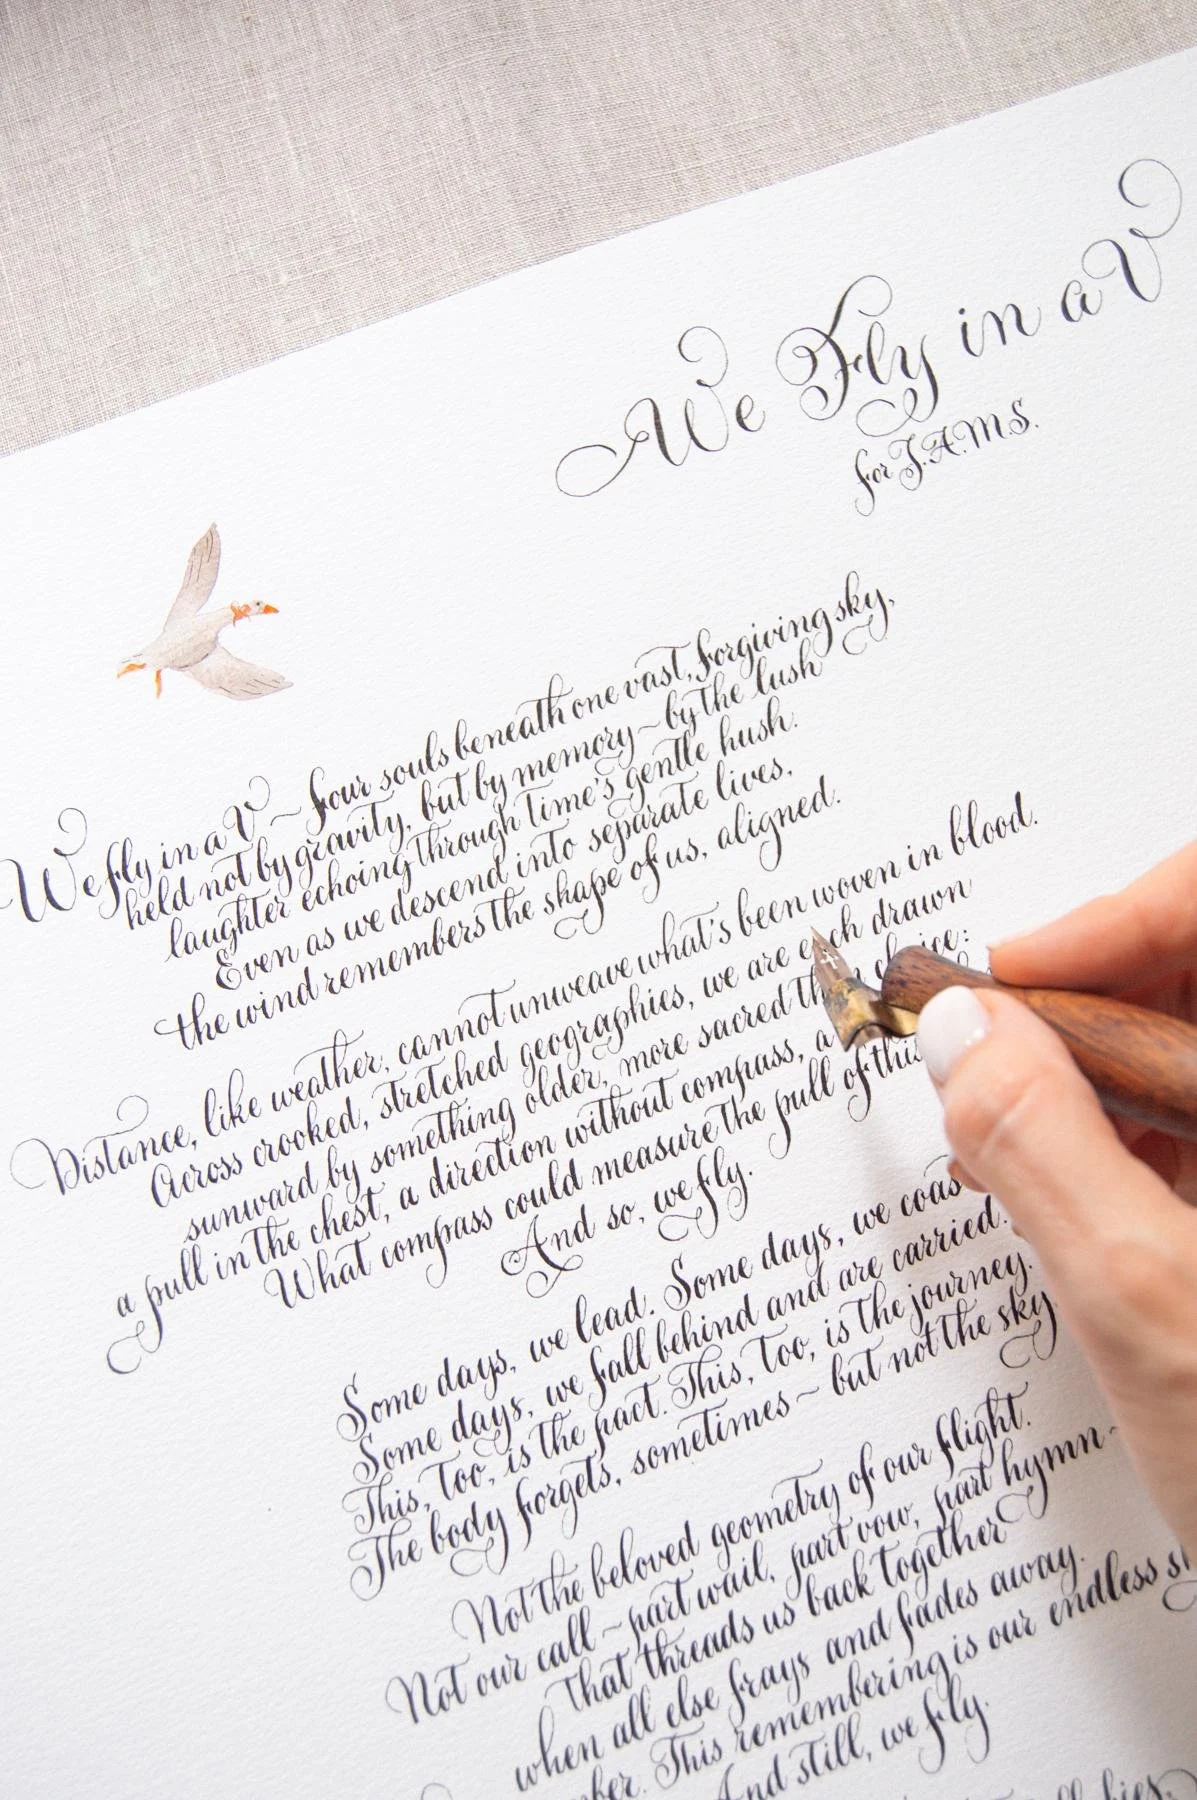 We Fly in a V
for J.A.M.S.
We fly in a V ~ four souls beneath one vast, forgiving sky,
held not by gravity, but by memory ~ by the lush
laughter echoing through time's gentle hush.
Even as we descend into separate lives,
the wind remembers the shape of us, aligned.
Distance, like weather, cannot unweave what's been woven in blood.
Across crooked, stretched geographies, we are each drawn
sunward by something older, more sacred than choice:
a pull in the chest, a direction without compass, a
What compass could measure the pull of this
And so, we fly.
Some days, we lead. Some days, we coas
Some days, we fall behind and are carried.
This, too, is the pact. This, too, is the journey.
The body forgets, sometimes ~ but not the sky.
Not the beloved geometry of our flight.
Not our call ~ part wail, part vow, part hymn ~
that threads us back together
when all else frays and fades away.
This remembering is our endless
And still, we fly.